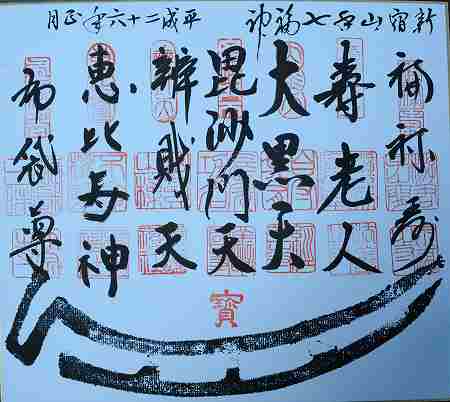 新宿山の手七福神 平成二十六年正月
福禄寿
壽老人
大黒天
毘沙門天
辨財天
恵比寿神
布袋尊
寶